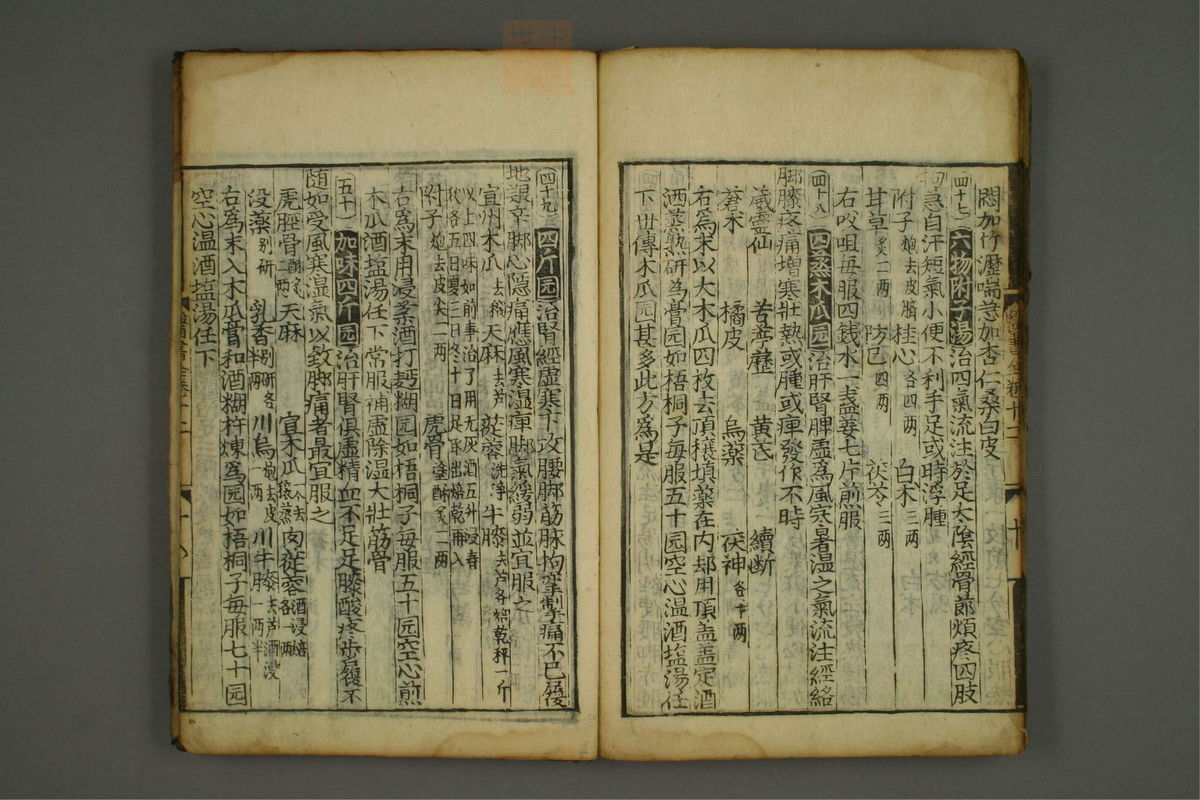 悶加竹瀝喘急加杏仁桑白皮
四十七 六物附子湯 治四氣流注於足太陰經骨節煩疼四肢
拘急自汗短氣小便不利手足或時浮腫
附子 炮去皮臍 桂心 各四兩 白朮 三兩
甘草 炙一兩 防己 四兩 茯苓 三兩
右㕮咀每服四錢水一盞姜七片煎服
四十八 四蒸木瓜园 治肝腎脾虛爲風寒暑濕之氣流注經絡
脚膝疼痛增寒壯熱或腫或痺發作不時
威靈仙 苦葶藶 黃芪 續斷
蒼朮 橘皮 烏藥 茯神 各十兩
右爲末以大木瓜四枚去頂穰填藥在內却用頂盖盖定酒
洒蒸熟研爲膏园如梧桐子每服五十园空心温酒塩湯任
下世傳木瓜园甚多此方爲是
四十九 四斤园 治腎經虛寒下攻腰脚筋脉拘攣掣痛不已履
地艱辛脚心隱痛應風寒濕痺脚氣緩弱並宜服之
宣州木瓜 去穰 天麻 去芦 蓯蓉 洗淨 牛膝 去芦各焙乾秤一斤
以上四味如前事治了用无灰酒五升浸春
秋各五日夏三日冬十日足取出焙乾再入
附子 炮去皮尖一兩 虎骨 塗酥炙一兩
右爲末用浸藥酒打麪糊园如梧桐子每服五十园空心煎
木瓜酒塩湯任下 常服補虛除濕大壯筋骨
五十 加味四斤园 治肝腎俱虛精血不足足膝酸疼步履不
随如受風寒濕氣以致脚痛者最宜服之
虎脛骨 酥炙一兩 天麻 宣木瓜 一个去穰蒸 肉蓯蓉 酒浸焙各一兩
没藥 别研 乳香 别研各半兩 川烏 炮去皮一兩 川牛膝 去芦酒浸一兩半
右爲末入木瓜膏和酒糊杵煉爲园如梧桐子每服七十园
空心温酒塩湯任下